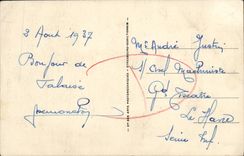 3 Aout 1937
Bonjour de
Falaise
Mr André Justin
s/ Chef Machiniste
Gd Theatre
Le Havre
Seine Inf.